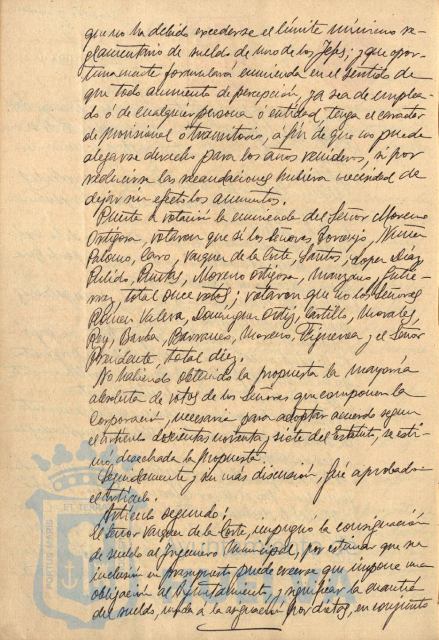 que no ha debido excederse el límite mínimo re-
glamentario de sueldo de uno de los Jefes; y que opor-
tunamente formulará enmienda en el sentido de
que todo aumento de percepción, ya sea de emplea-
do ó de cualquier persona ó entidad, tenga el caracter
de provisional ó transitorio, a fin de que no pueda
alegarse derecho para los años venideros, si por
reducirse las recaudaciones hubiera necesidad de
dejar sin efecto los aumentos.
Puesta a votación la enmienda del Señor Moreno
Ortigosa, votaron que sí los Señores Nuñez
Palomo, Caro, Vazquez de la Corte, Santos, Lopez Diaz
Pulido, Moreno Ortigosa, Manzano, Gutie-
rrez, total once votos; votaron que no los Señores
Valera, Dominguez Ortiz, Castillo, Morales,
Rey, Barba, Barranco, Moreno, Figueroa y el Señor
Presidente, total diez.
No habiendo obtenido la propuesta la mayoría
absoluta de votos de los Señores que componen la
Corporación, necesaria para adoptar acuerdo segun
el artículo doscientos noventa y siete del Estatuto, se esti-
mó desechada la propuesta.
Seguidamente y sin más discusión, fué aprobado
el artículo.
Artículo segundo;
El Señor Vazquez de la Corte, impugnó la consignación
de sueldo al Ingeniero Municipal, por estimar que su
inclusión en presupuesto puede creerse que impone una
obligación al Ayuntamiento, y significar la cuantía
del sueldo, unida a la asignación por dietas, en conjunto
PORTUS MARIS
ET TERRAE